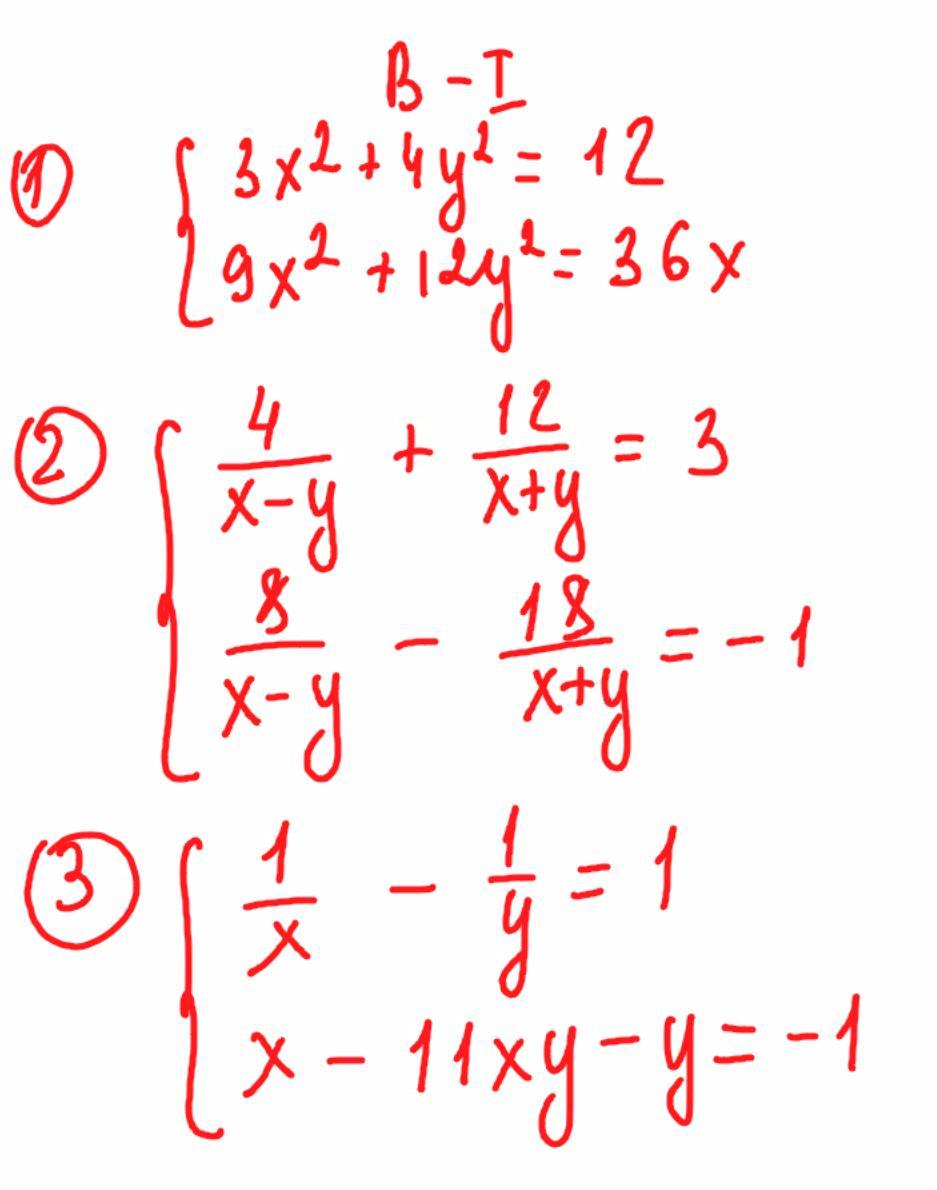 B - I
① { 3x² + 4y² = 12
9x² + 12y² = 36x
② { 4/(x-y) + 12/(x+y) = 3
8/(x-y) - 18/(x+y) = -1
③ { 1/x - 1/y = 1
x - 11xy - y = -1